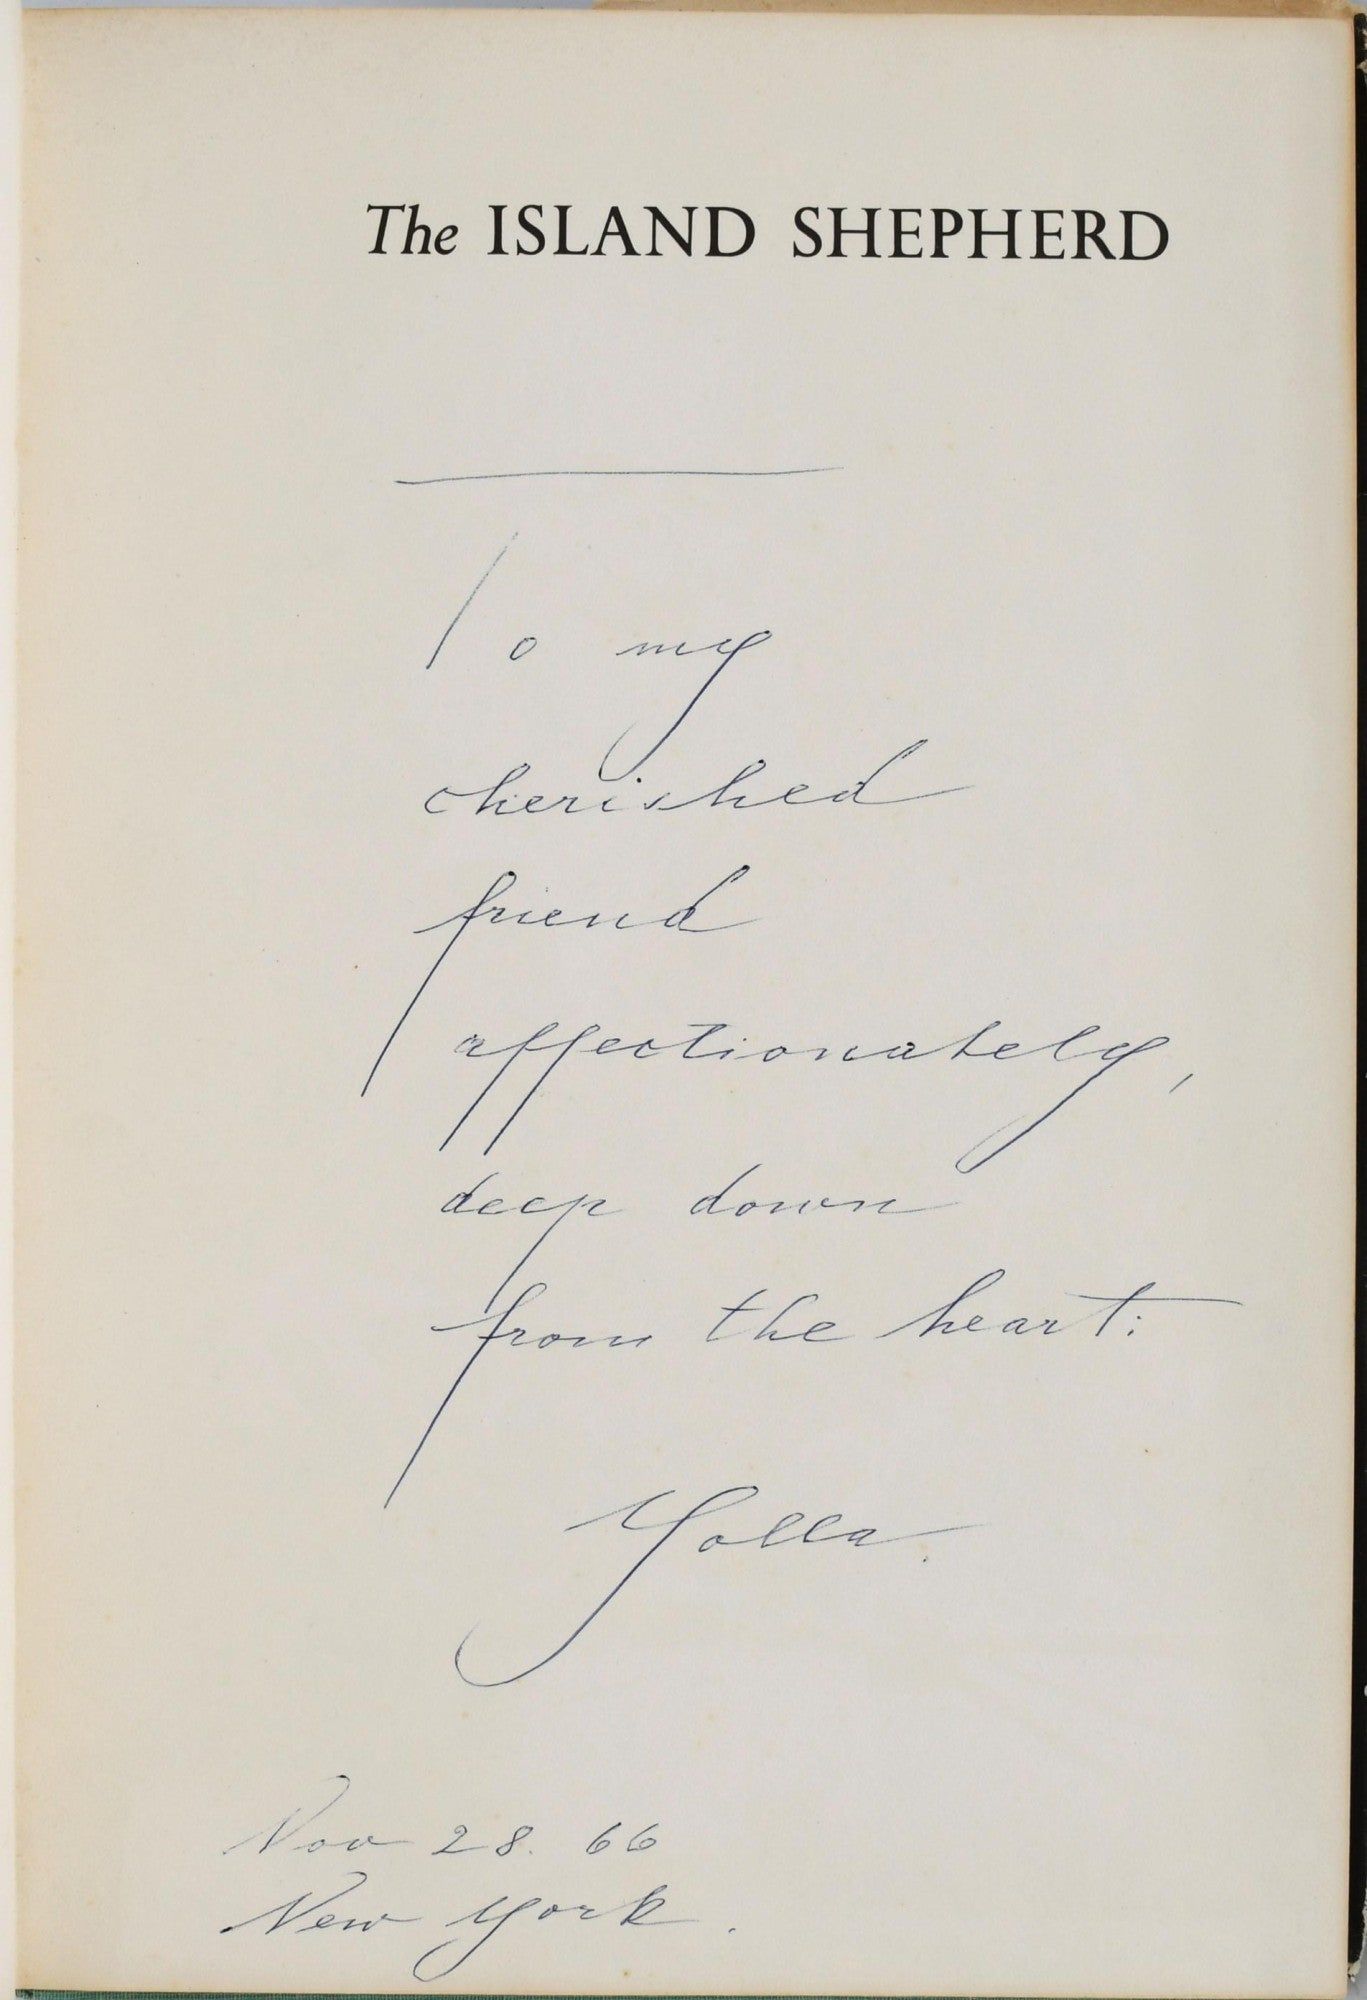 The ISLAND SHEPHERD
To my
cherished
friend
affectionately,
deep down
from the heart:
Yolla.
Nov 28. 66
New York.